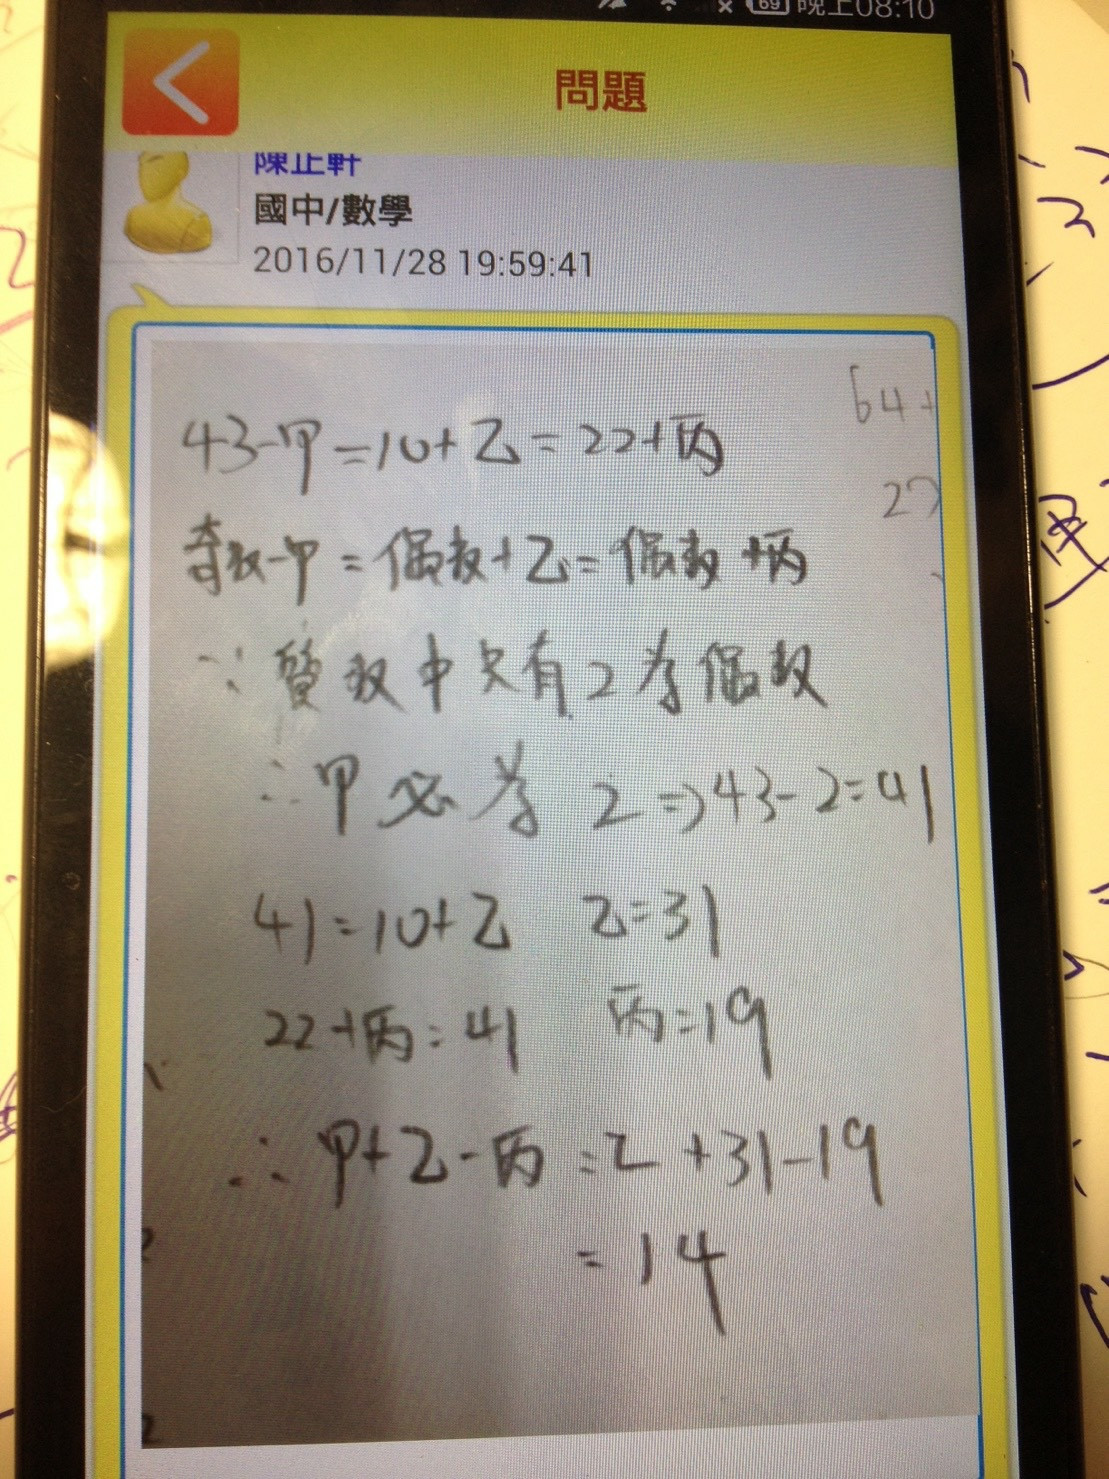 晚上08:10
問題
陳正軒
國中/數學
2016/11/28 19:59:41
64+
43-甲=10+乙=22+丙
27
奇數-甲=偶數+乙=偶數+丙
∵質數中只有2為偶數
∴甲必為2⇒43-2=41
41=10+乙 乙=31
22+丙=41 丙=19
∴甲+乙-丙=2+31-19
=14